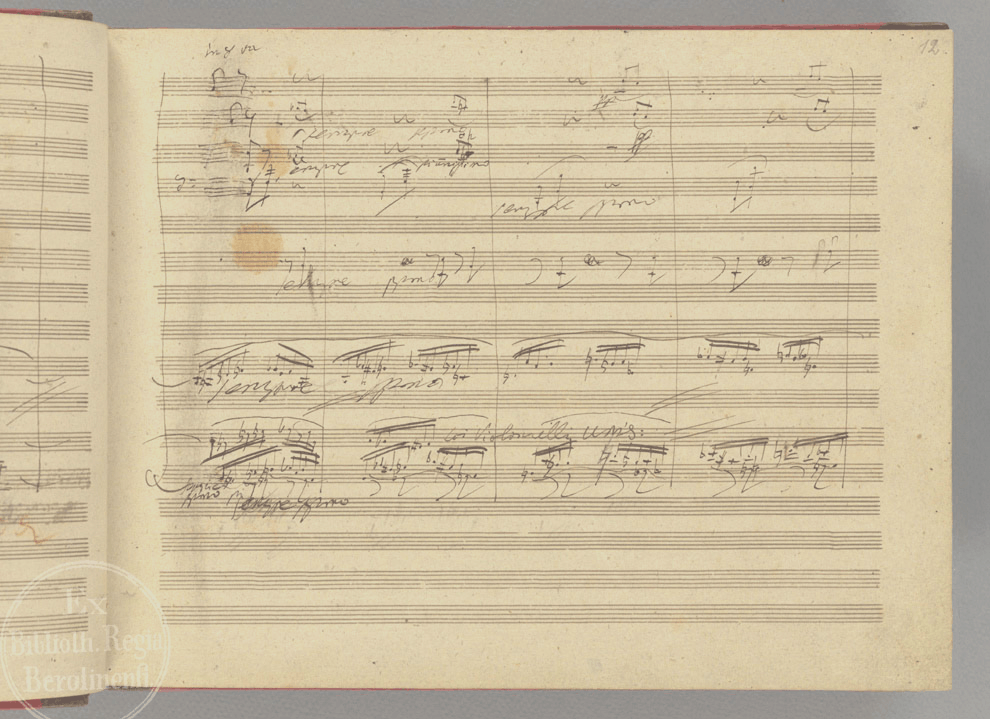 12.
in 8va
sempre piano
sempre pianissimo
sempre piano
sempre piano
sempre piano
coi Violoncelli unis:
sempre piano
Ex
Biblioth. Regia
Berolinensi